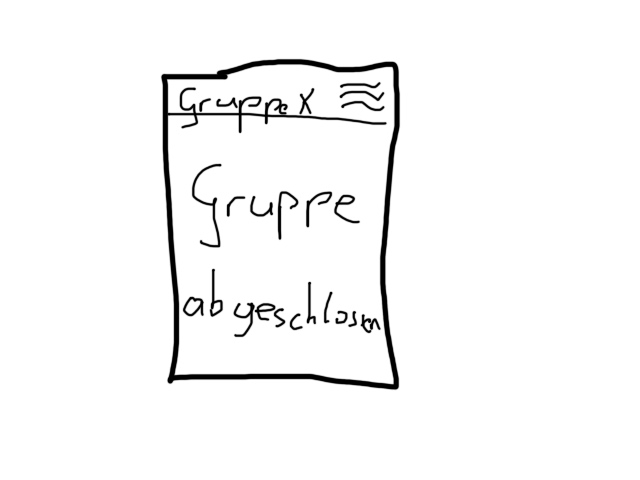 Gruppe X
Gruppe
abgeschlosen